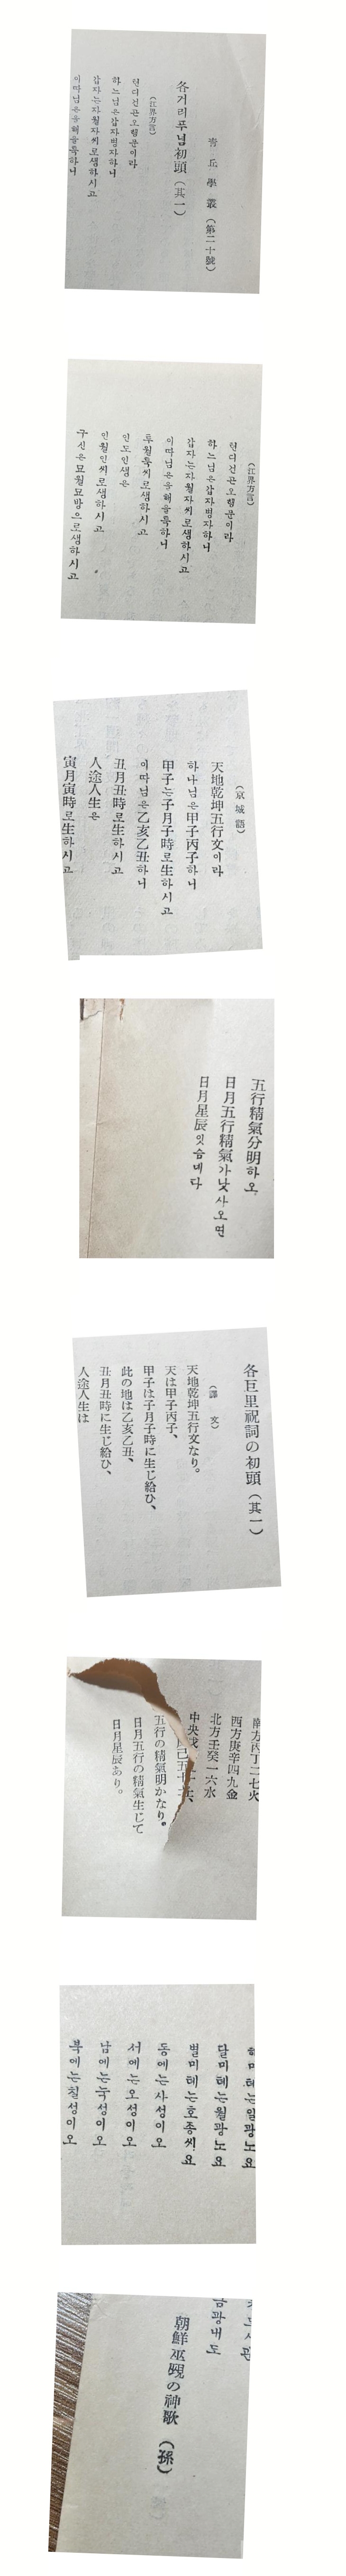 靑丘學叢（第二十號）
各거리푸념初頭（其一）
（江界方言）
턴디건곤오행문이라
하느님은갑자병자하니
갑자는자월자씨로생하시고
이따님은을해을축하니
（江界方言）
턴디건곤오행문이라
하느님은갑자병자하니
갑자는자월자씨로생하시고
이따님은을해을축하니
축월축씨로생하시고
인도인생은
인월인씨로생하시고
구신은묘월묘방으로생하시고
（京城語）
天地乾坤五行文이라
하나님은甲子丙子하니
甲子는子月子時로生하시고
이따님은乙亥乙丑하니
丑月丑時로生하시고
人途人生은
寅月寅時로生하시고
五行精氣分明하오
日月五行精氣가낫사오면
日月星辰잇슴네다
各巨里祝詞の初頭（其一）
（譯文）
天地乾坤五行文なり。
天は甲子丙子、
甲子は子月子時に生じ給ひ、
此の地は乙亥乙丑、
丑月丑時に生じ給ひ、
人途人生は
南方丙丁二七火
西方庚辛四九金
北方壬癸一六水
中央戊己五十土、
五行の精氣明かなり。
日月五行の精氣生じて
日月星辰あり。
해미테는일광노요
달미테는월광노요
별미테는호종씨요
동에는사성이오
서에는오성이오
남에는눅성이오
북에는칠성이오
금광내도
朝鮮巫覡の神歌（孫）